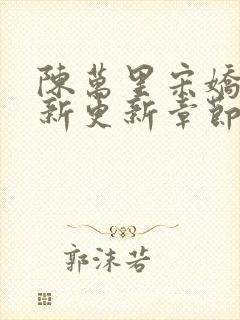 陳萬里宋嬌
新更新章節
郭沫若